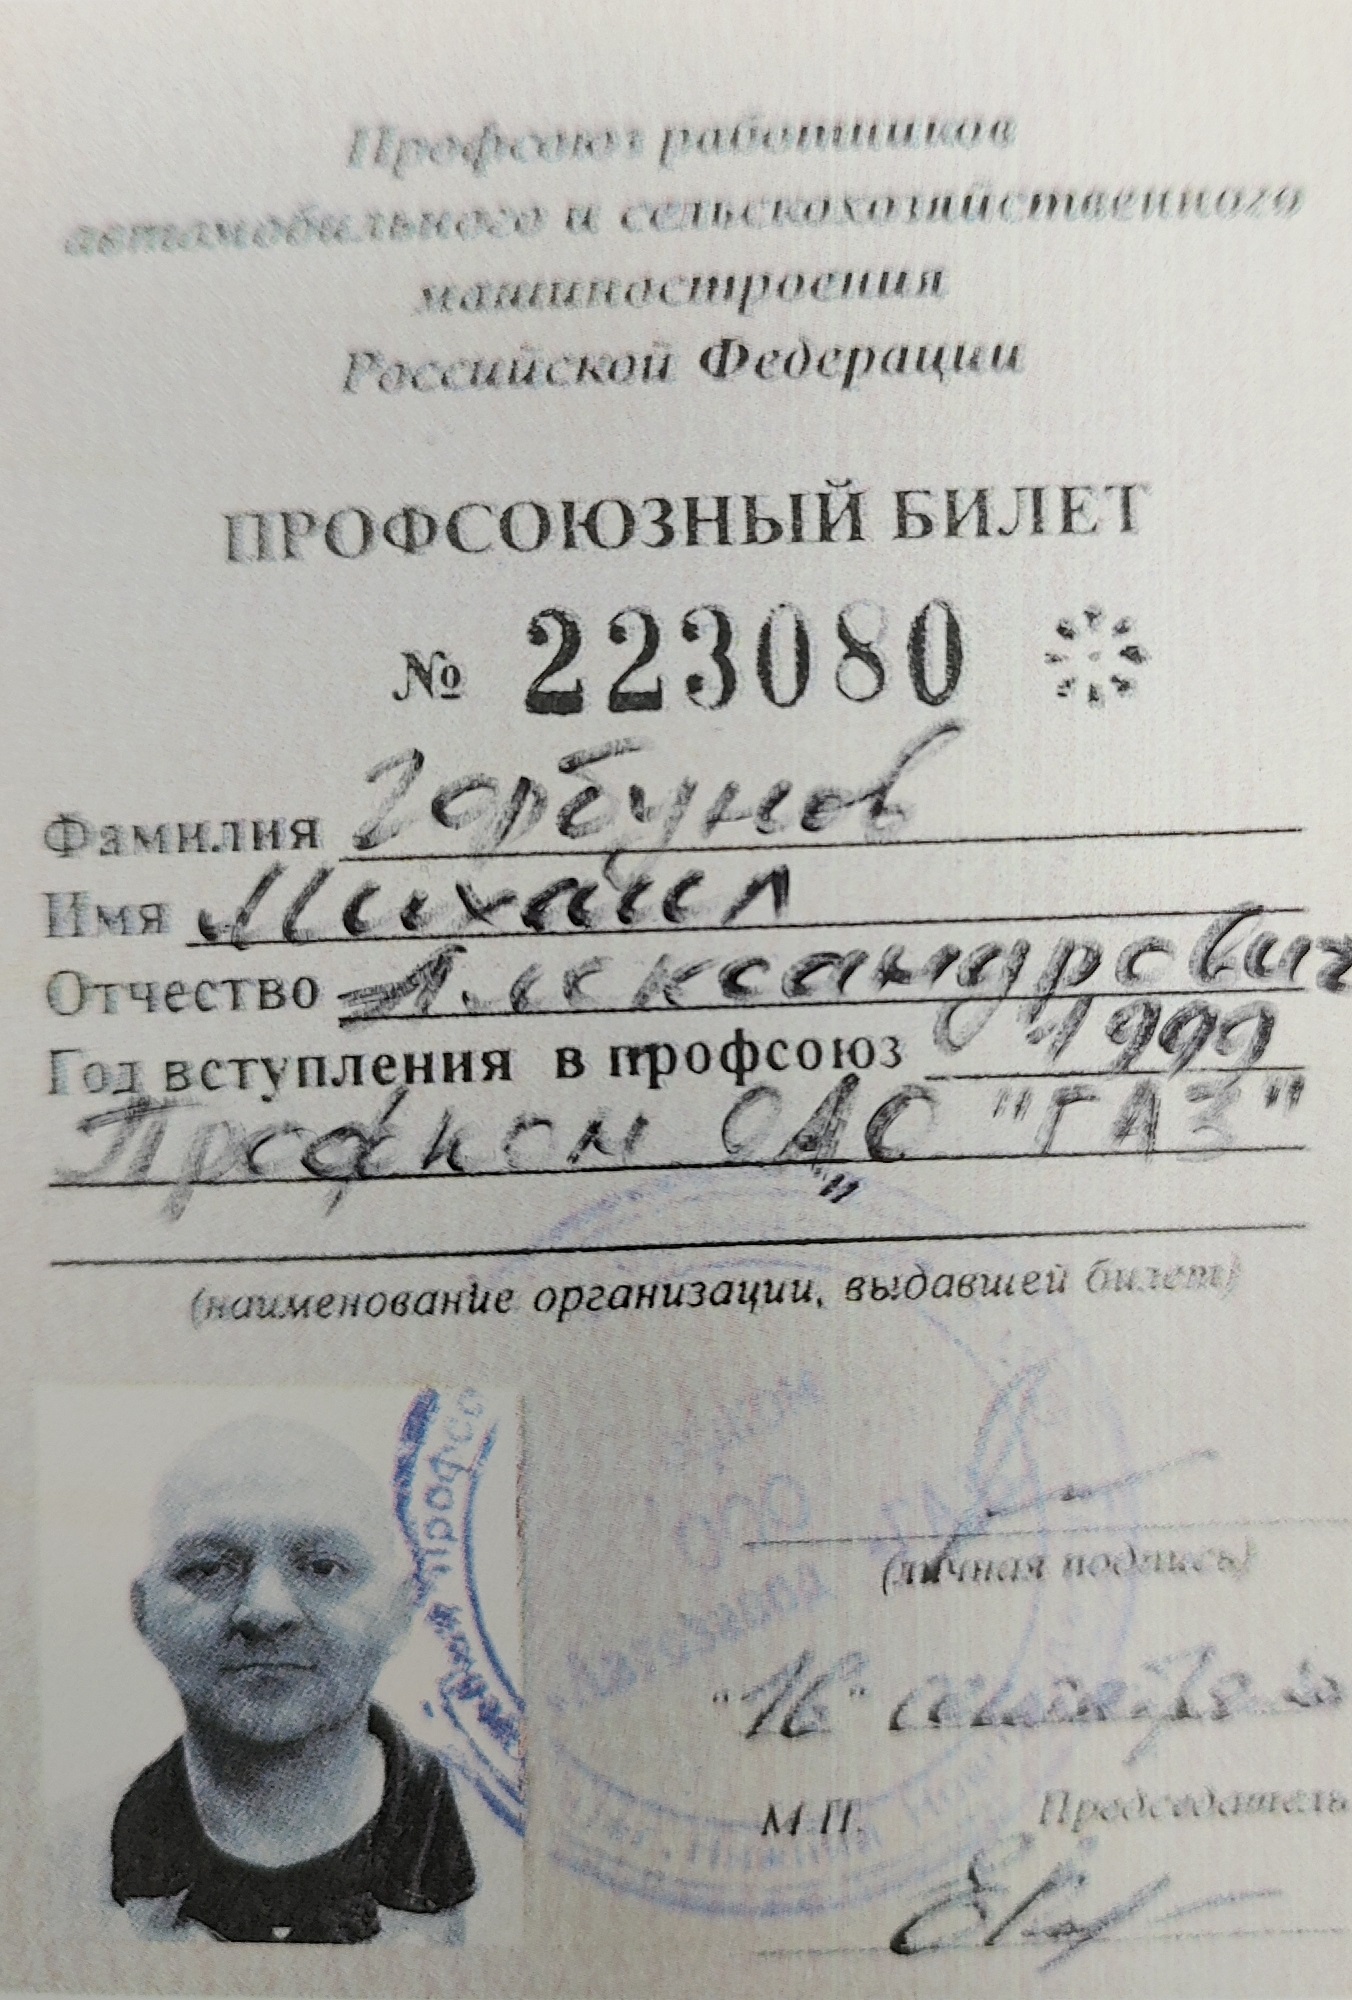 Профсоюз работников
автомобильного и сельскохозяйственного
машиностроения
Российской Федерации
ПРОФСОЮЗНЫЙ БИЛЕТ
№ 223080
Фамилия Горбунов
Имя Михаил
Отчество Александрович
Год вступления в профсоюз 1999
Профком ОАО "ГАЗ"
"
(наименование организации, выдавшей билет)
(личная подпись)
"16" сентября
М.П. Председатель